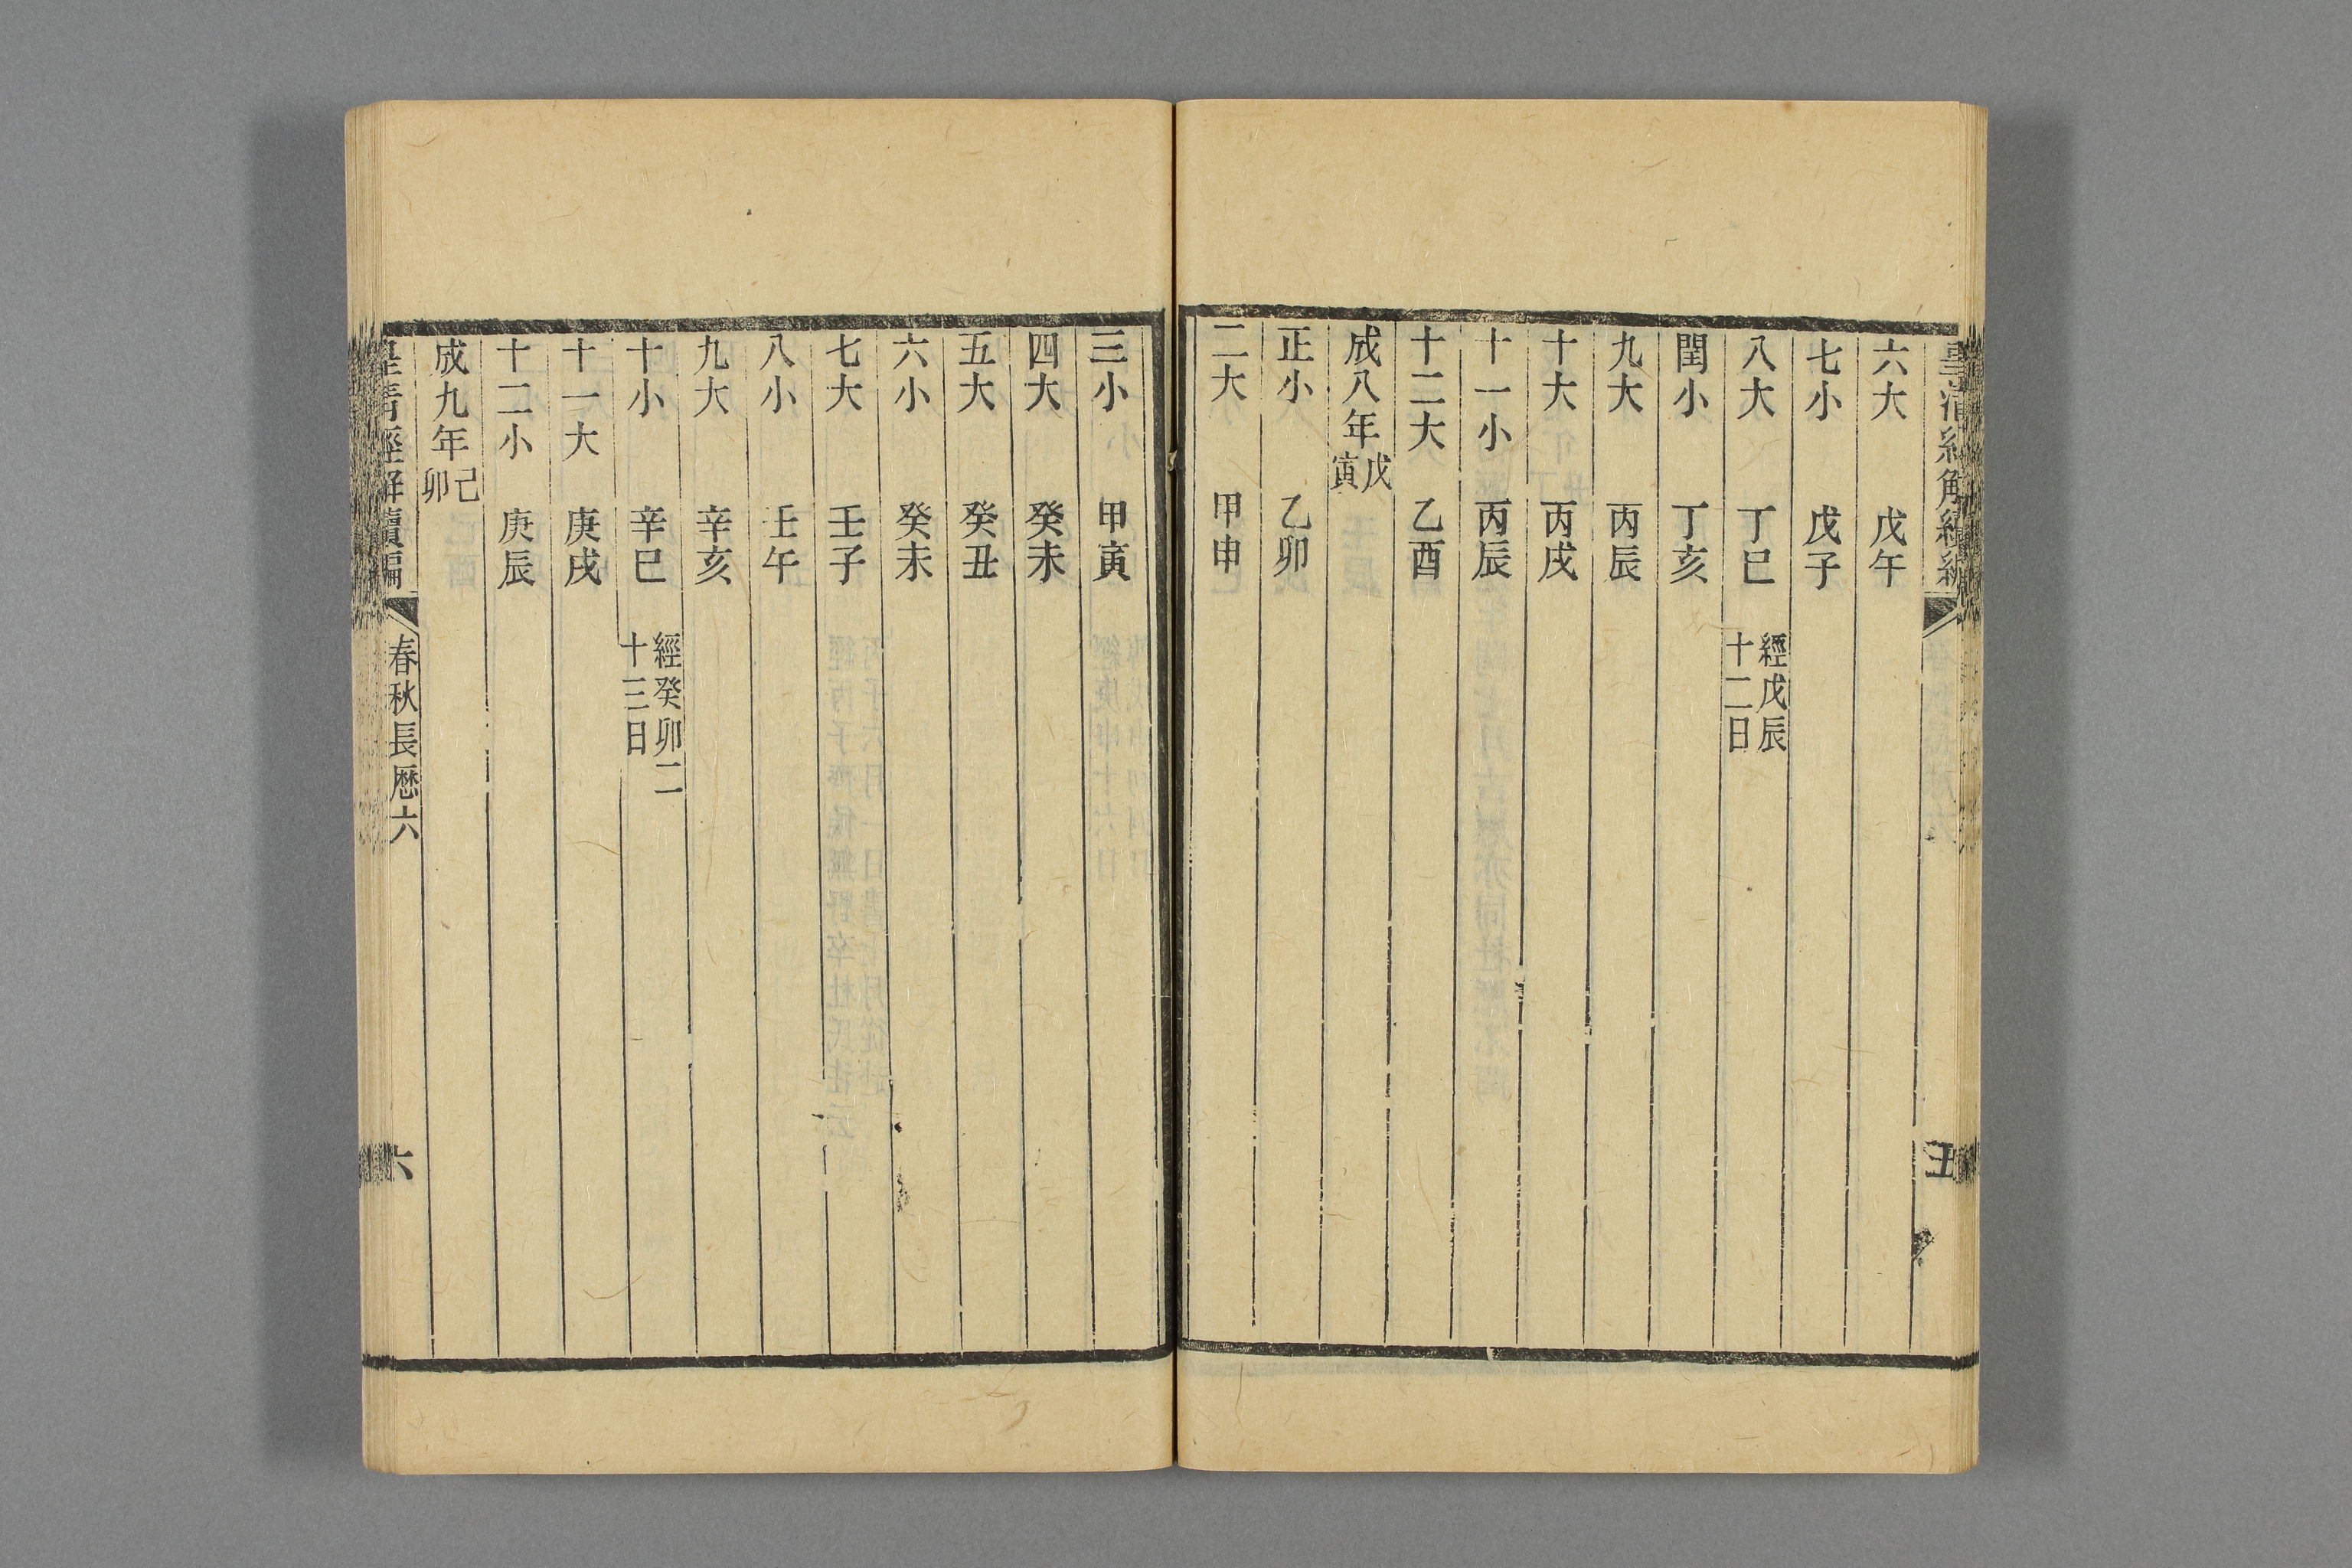 皇清經解續編
五
六大 戊午
七小 戊子
八大 丁巳 經戊辰十二日
閏小 丁亥
九大 丙辰
十大 丙戌
十一小 丙辰
十二大 乙酉
成八年戊寅
正小 乙卯
二大 甲申
三小 甲寅
四大 癸未
五大 癸丑
六小 癸未
七大 壬子
八小 壬午
九大 辛亥
十小 辛巳 經癸卯二十三日
十一大 庚戌
十二小 庚辰
成九年己卯
皇清經解續編
春秋長厯六
六